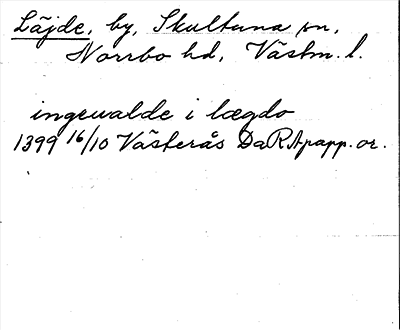 Läjde, by, Skultuna sn,
Norrbo hd, Västm. l.
ingewalde i lægdo
1399 16/10 Västerås DaRA papp. or.